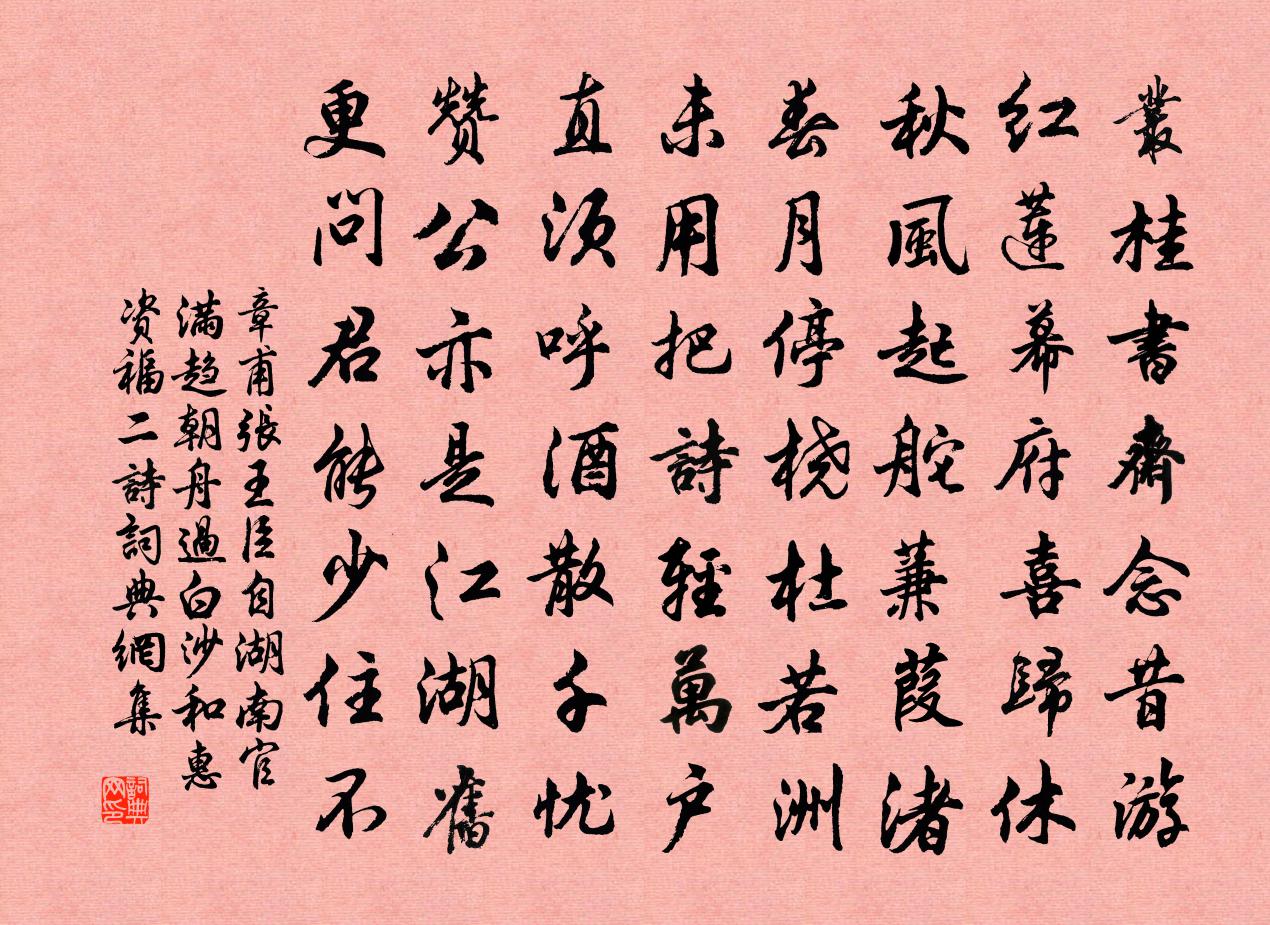 叢桂書齋念昔游
红蓮幕府喜歸休
秋風起舵蒹葭渚
春月停桡杜若洲
未用把詩輕萬户
直須呼酒散千忧
赞公亦是江湖舊
更問君能少住不
章甫張王臣自湖南官
满趋朝舟過白沙和惠
资福二詩詞典網集
詞典
网印